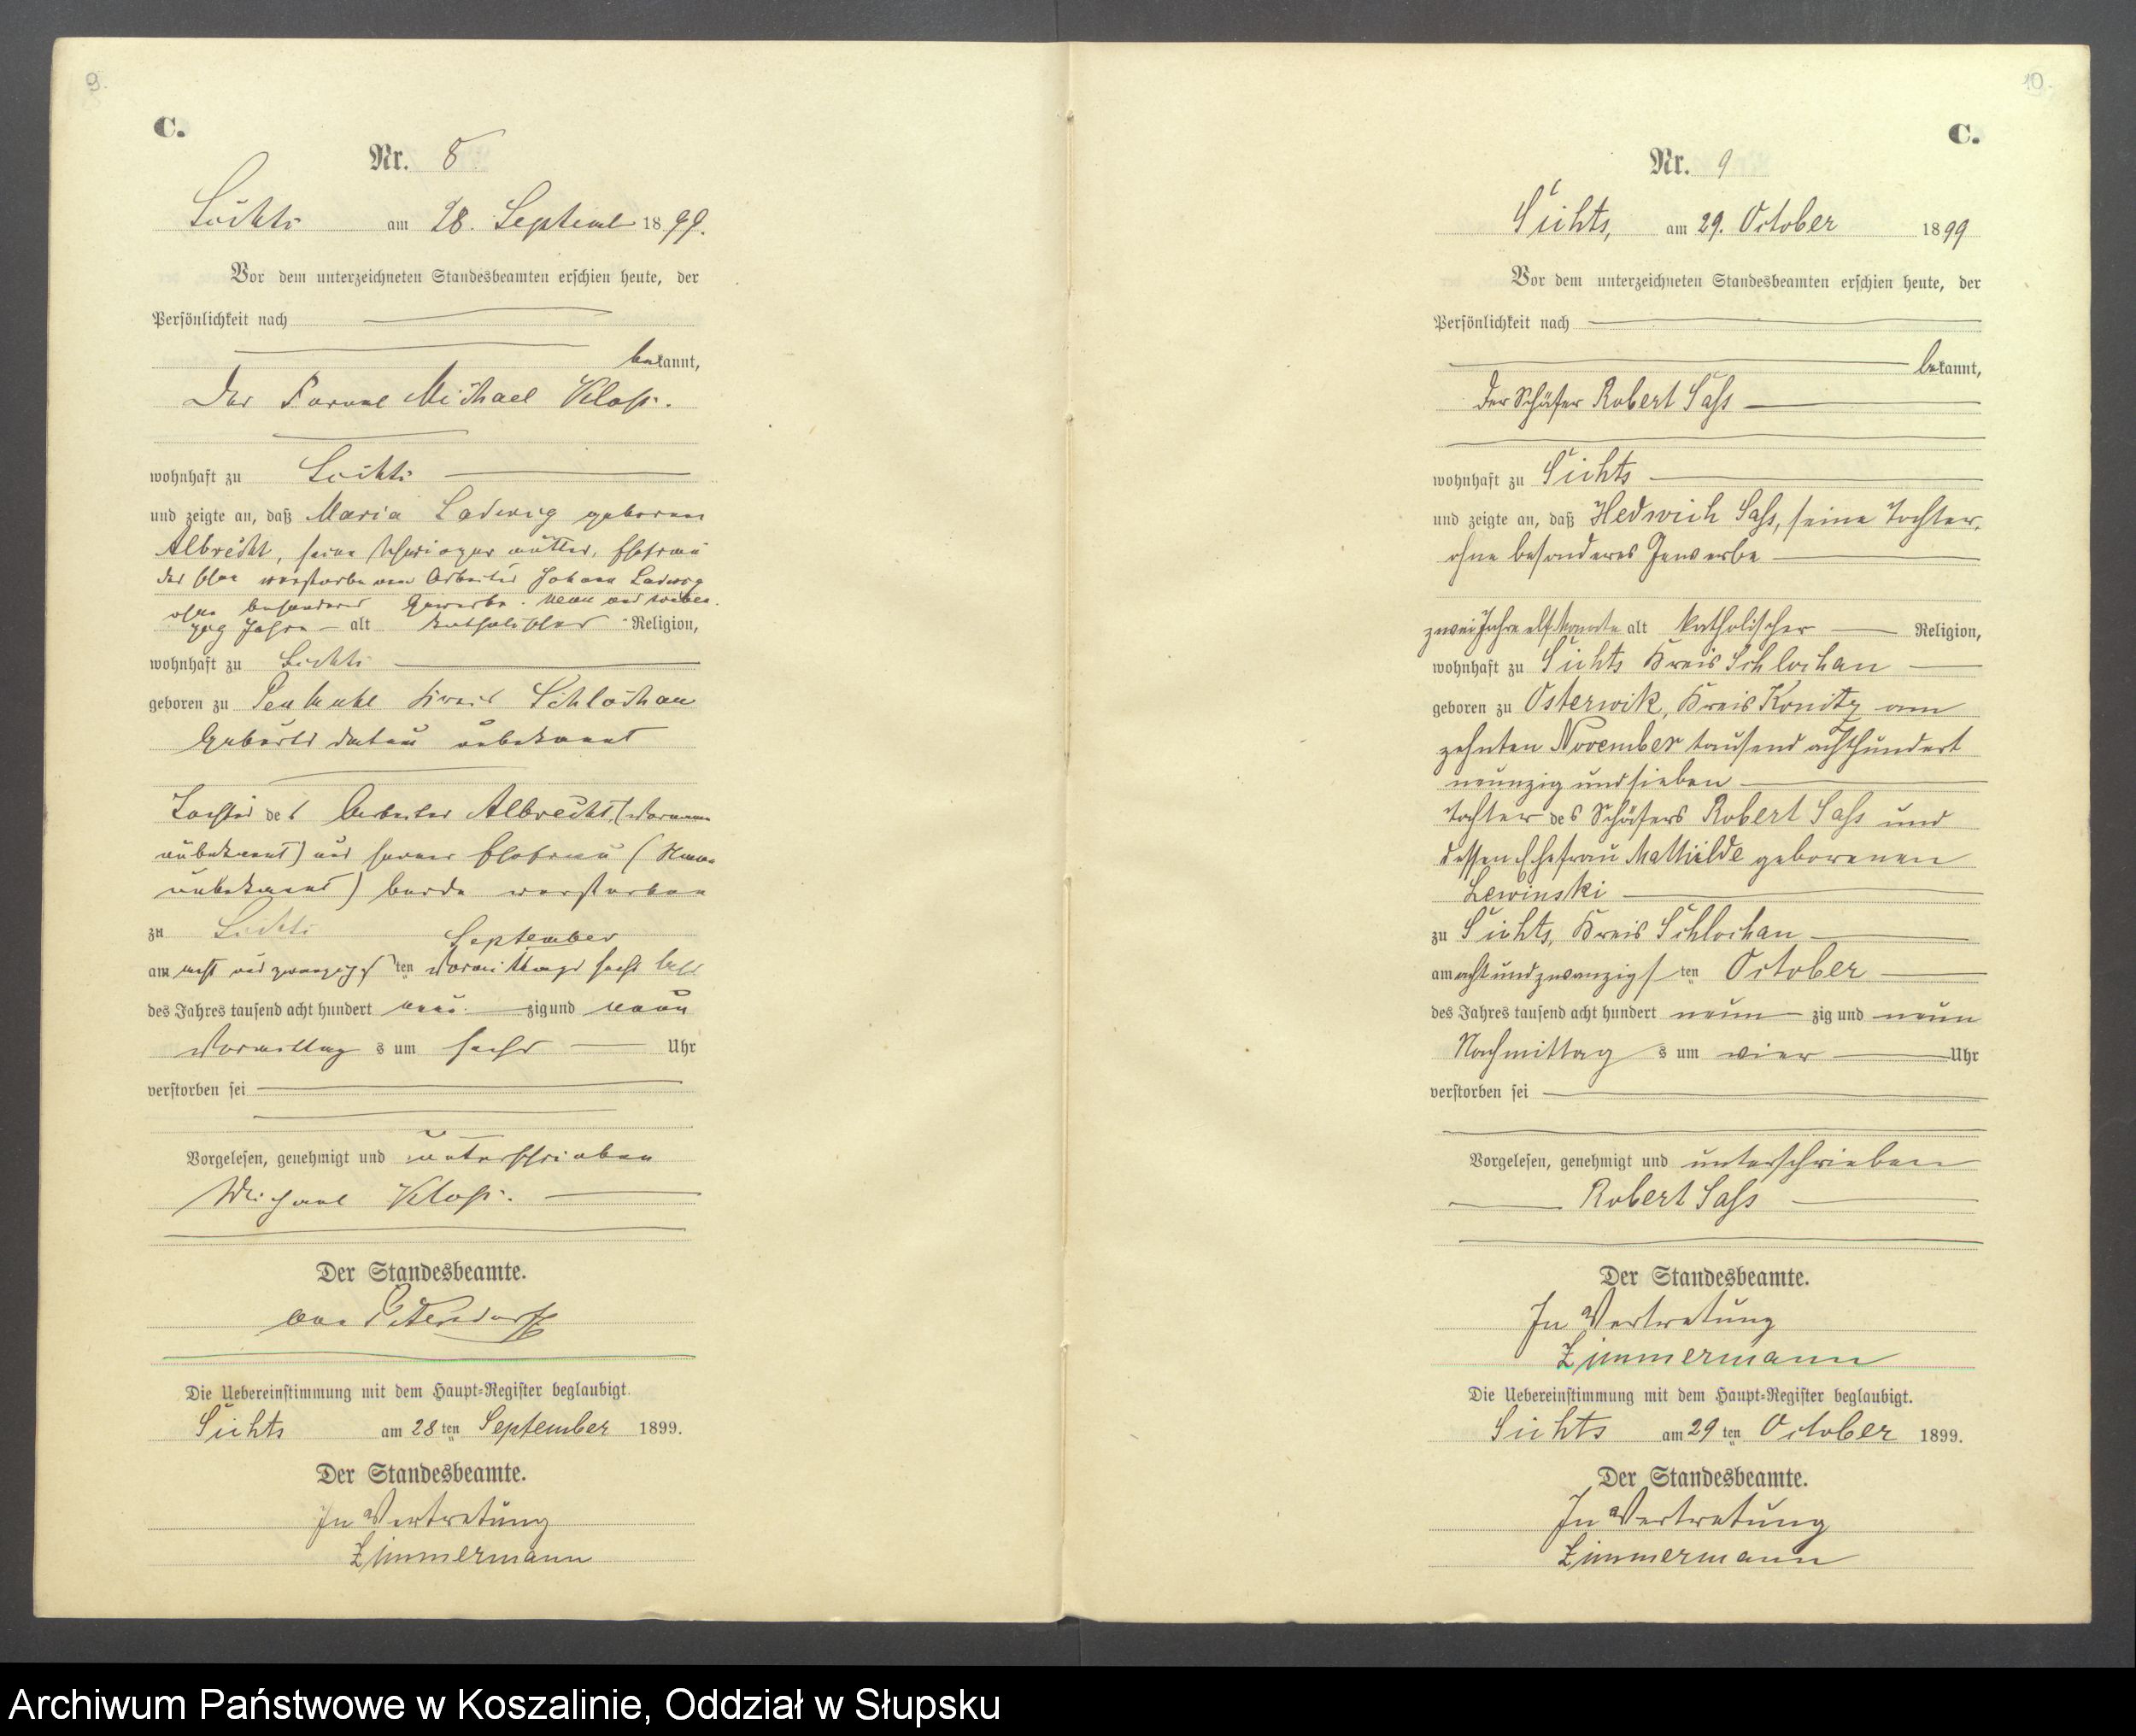 9.
C.
Nr. 8
Lichts am 28. September 1899.
Vor dem unterzeichneten Standesbeamten erschien heute, der
Persönlichkeit nach
bekannt,
Der Michael Klass.
wohnhaft zu Lichts
und zeigte an, daß Maria Ladewig geborene
Albrecht, seine Schwiegermutter, Ehefrau
des verstorbenen Arbeiter Johann Ladewig
ohne besonderes Gewerbe. neun und sieben
zig Jahre alt katholischer Religion,
wohnhaft zu Lichts
geboren zu Kreis Schlochau
Geburtsdatum unbekannt
Tochter des Arbeiter Albrecht, (Vorname
unbekannt) und seiner Ehefrau (Name
unbekannt) beide verstorben
zu Lichts
September
am acht und zwanzigsten Vormittags sechs
des Jahres tausend acht hundert neun zig und neun
Vormittag s um sechs Uhr
verstorben sei
Vorgelesen, genehmigt und unterschrieben
Michael Klass.
Der Standesbeamte.
Die Uebereinstimmung mit dem Haupt-Register beglaubigt.
Lichts am 28 ten September 1899.
Der Standesbeamte.
In Vertretung
Zimmermann
10.
C.
Nr. 9
Lichts, am 29. October 1899
Vor dem unterzeichneten Standesbeamten erschien heute, der
Persönlichkeit nach
bekannt,
der Schäfer Robert Sass
wohnhaft zu Lichts
und zeigte an, daß Hedwich Sass, seine Tochter,
ohne besonderes Gewerbe
zwei Jahre elf Monate alt katholischer Religion,
wohnhaft zu Lichts Kreis Schlochau
geboren zu Osterwik, Kreis Konitz am
zehnten November tausend achthundert
neunzig und sieben
Tochter des Schäfers Robert Sass und
dessen Ehefrau Mathilde geborenen
Lewinski
zu Lichts, Kreis Schlochau
am acht und zwanzigs ten October
des Jahres tausend acht hundert neun zig und neun
Nachmittag s um vier Uhr
verstorben sei
Vorgelesen, genehmigt und unterschrieben
Robert Sass
Der Standesbeamte.
In Vertretung
Zimmermann
Die Uebereinstimmung mit dem Haupt-Register beglaubigt.
Lichts am 29 ten October 1899.
Der Standesbeamte.
In Vertretung
Zimmermann
Archiwum Państwowe w Koszalinie, Oddział w Słupsku